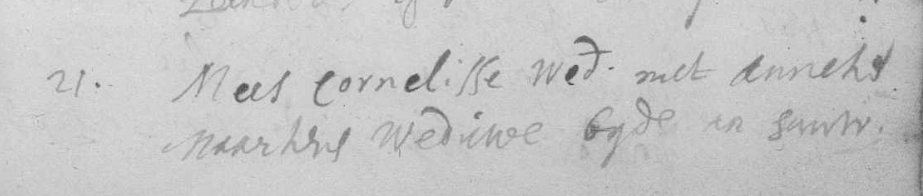 21. Mees Cornelisse Wed. met Annetie
Maertens Weduwe byde in